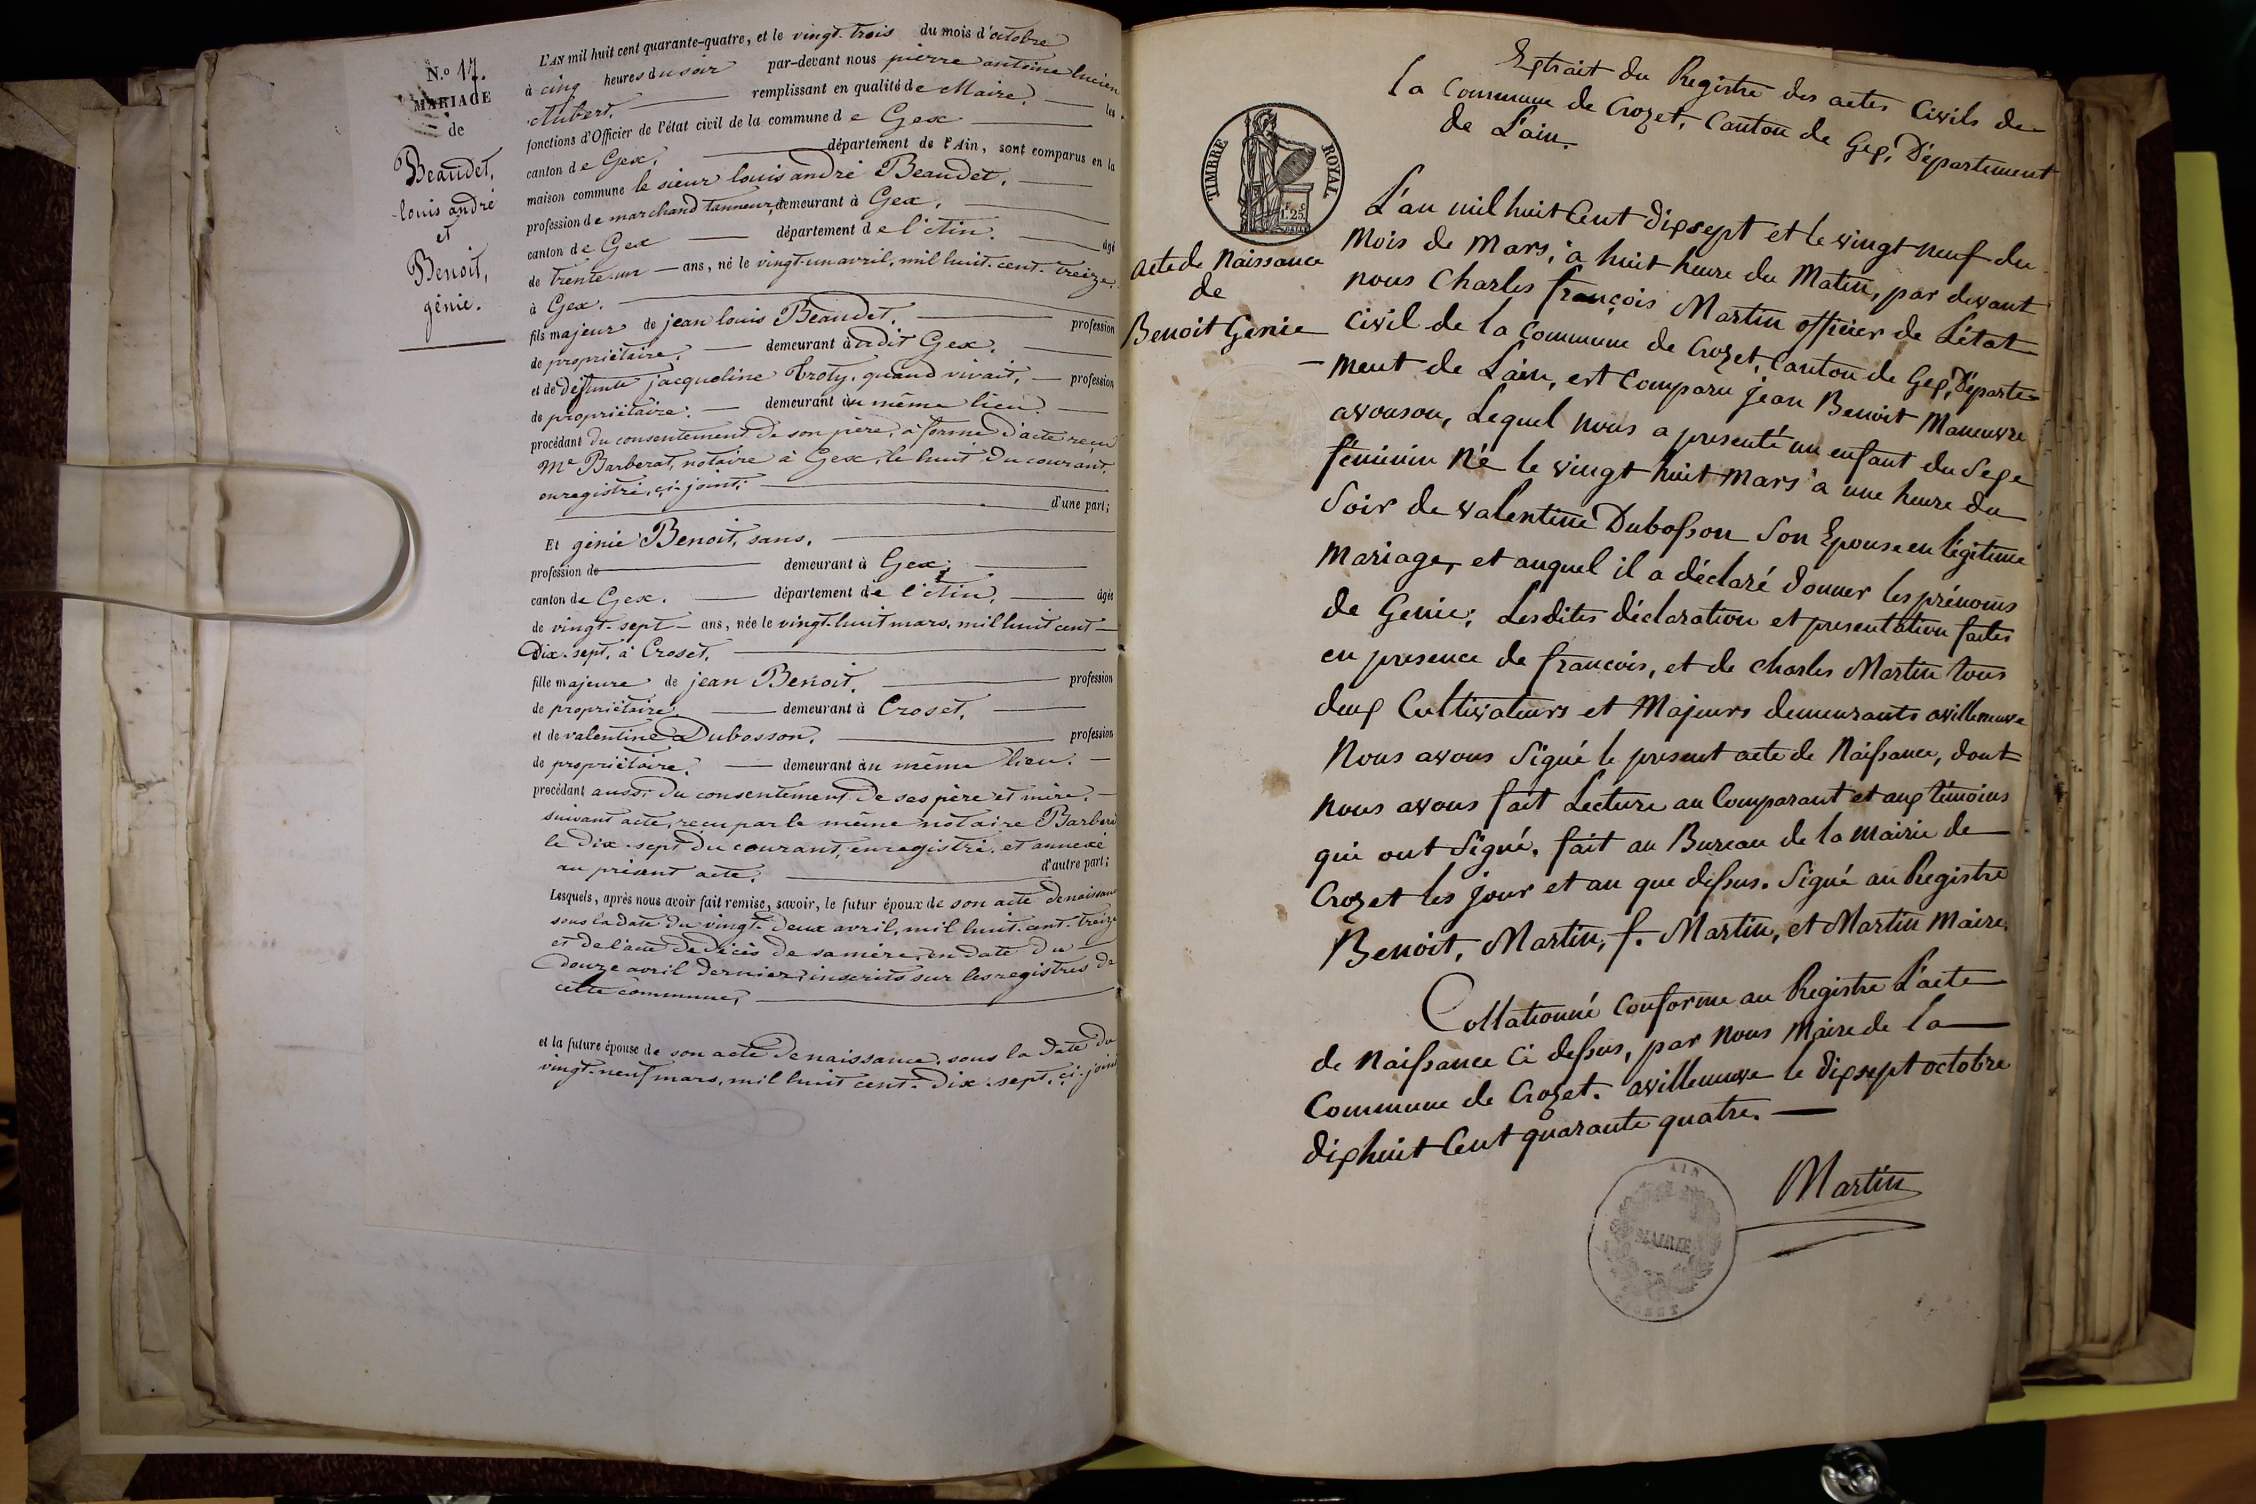 N.º 17.
MARIAGE
de
Beaudet,
louis andré
et
Benoit,
génie.
L'AN mil huit cent quarante-quatre, et le vingt-trois du mois d'octobre
à cinq heures du soir par-devant nous pierre antoine lucien
Aubert, remplissant en qualité de Maire, les
fonctions d'Officier de l'état civil de la commune de Gex
canton de Gex, département de l'Ain, sont comparus en la
maison commune le sieur louis andré Beaudet,
profession de marchand tanneur, demeurant à Gex,
canton de Gex département de l'Ain, âgé
de trente-un ans, né le vingt-un avril, mil huit-cent-treize,
à Gex.
fils majeur de jean louis Beaudet, profession
de propriétaire, demeurant audit Gex,
et de défunte jacqueline Troty, quand vivait, profession
de propriétaire, demeurant au même lieu.
procédant du consentement de son père, à forme d'acte reçu
Me Barberat, notaire à Gex, le huit du courant,
enregistré, ci-joint;
d'une part;
Et génie Benoit, sans,
profession de demeurant à Gex,
canton de Gex, département de l'Ain, âgée
de vingt-sept ans, née le vingt-huit mars, mil huit cent
Dix-sept, à Croset,
fille majeure de jean Benoit, profession
de propriétaire demeurant à Croset,
et de valentine Dubosson, profession
de propriétaire, demeurant au même lieu.
procédant aussi du consentement de ses père et mère,
suivant acte, reçu par le même notaire Barbera
le dix-sept du courant, enregistré, et annexé
au présent acte, d'autre part;
Lesquels, après nous avoir fait remise, savoir, le futur époux de son acte de naissance
sous la date du vingt-deux avril, mil huit-cent-treize
et de l'acte de décès de sa mère, en date du
douze avril dernier, inscrits sur les registres de
cette commune,
et la future épouse de son acte de naissance, sous la date du
vingt-neuf mars, mil huit cent-dix-sept, ci-joint
Extrait du Registre des actes Civils de
la Commune de Crozet, Canton de Gex, Département
de L'ain.
TIMBRE ROYAL
1.25
acte de Naissance
de
Benoit Génie
L'an mil huit Cent dixsept et le vingt neuf du
mois de Mars, à huit heure du Matin, par devant
nous Charles françois Martin officier de L'état
Civil de la Commune de Crozet, Canton de Gex, Départe
ment de L'ain, est Comparu jean Benoit Maneuvre
avouson, Lequel nous a presenté un enfant du Sexe
féminin Né le vingt huit Mars à une heure du
Soir de valentine Dubosson Son Epouse en légitime
Mariage, et auquel il a déclaré donner les prénoms
de Génie; Lesdites déclaration et presentation faites
en presence de francois, et de charles Martin tous
deux Cultivateurs et Majeurs demeurants avilleneuve
Nous avons Signé le present acte de Naissance, dont
nous avons fait Lecture au Comparant et aux témoins
qui ont Signé. fait au Bureau de la Mairie de
Crozet les jour et an que dessus. Signé au Registre
Benoit, Martin, f. Martin, et Martin Maire.
Collationné Conforme au Registre L'acte
de Naissance Ci dessus, par Nous Maire de la
Commune de Crozet. avilleneuve le dixsept octobre
dixhuit Cent quarante quatre.
Martin
AIN
MAIRIE